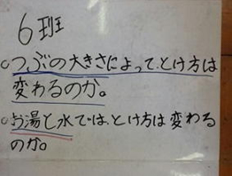 6班
○つぶの大きさによって、とけ方は
変わるのか。
○お湯と水では、とけ方は変わる
のか。